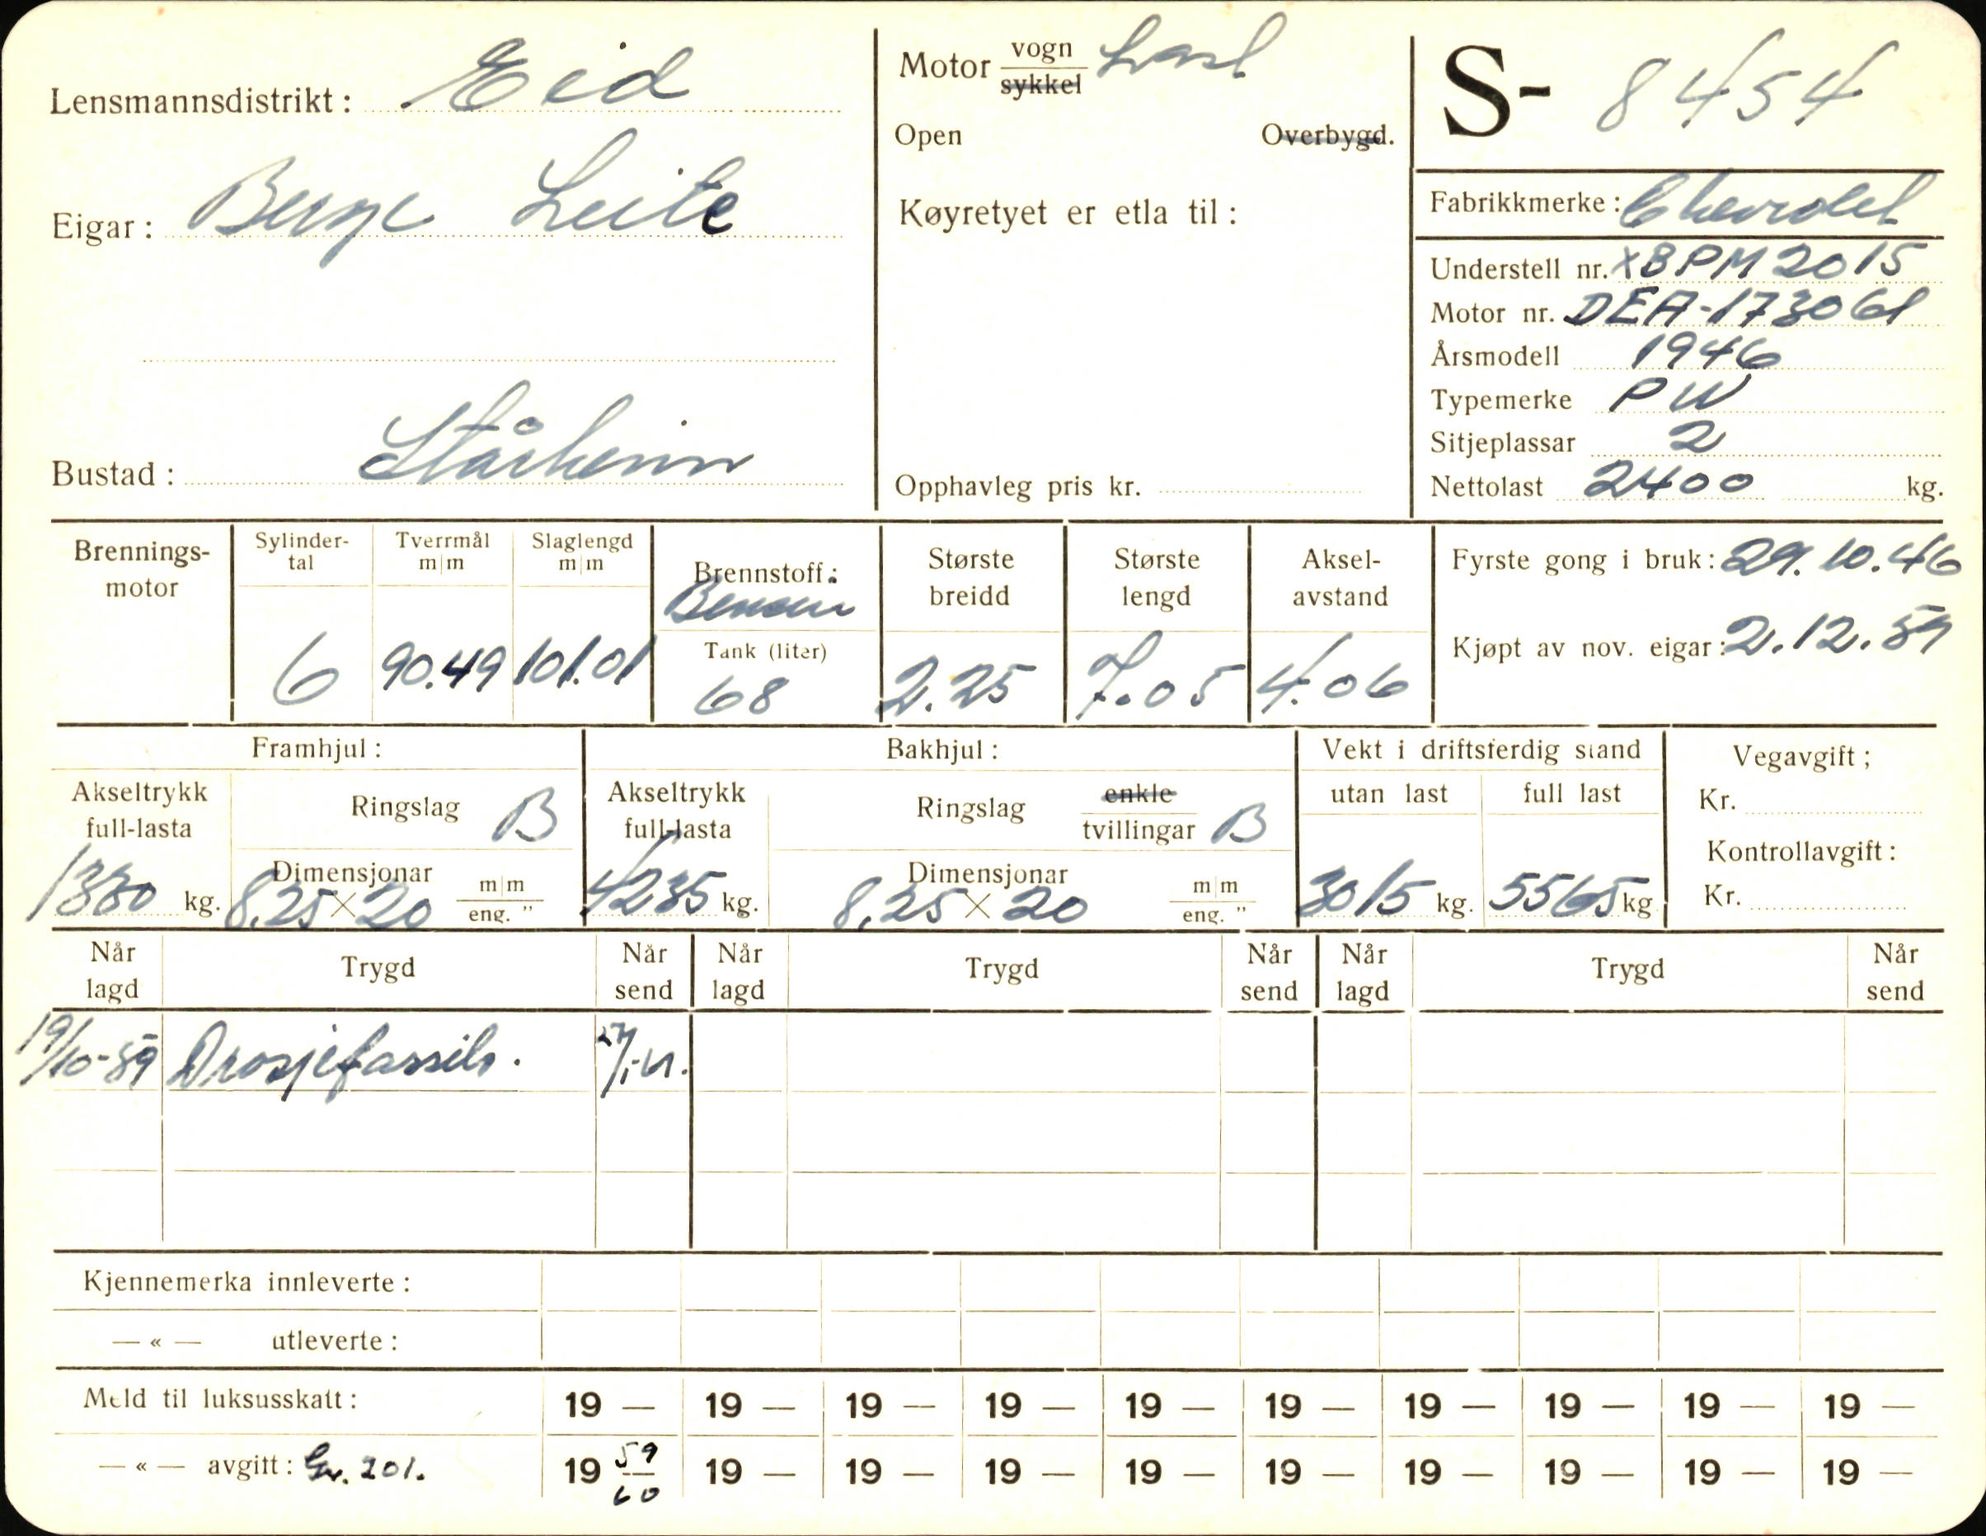 Lensmannsdistrikt: Eid
Eigar: Berge Leite
Bustad: Ståheim
Motor vogn Last
sykkel
Open Overbygd.
Køyretyet er etla til:
Opphavleg pris kr.
S- 8454
Fabrikkmerke: Chevrolet
Understell nr. XBPM2015
Motor nr. DEA-173061
Årsmodell 1946
Typemerke PW
Sitjeplassar 2
Nettolast 2400 kg.
Brennings-
motor
Sylinder-
tal
6
Tverrmål
m|m
90.49
Slaglengd
m|m
101.01
Brennstoff:
Bensin
Tank (liter)
68
Største
breidd
2.25
Største
lengd
7.05
Aksel-
avstand
4.06
Fyrste gong i bruk: 29.10.46
Kjøpt av nov. eigar: 2.12.59
Framhjul:
Akseltrykk
full-lasta
1330 kg.
Ringslag B
Dimensjonar
8.25 × 20 m|m
eng. "
Bakhjul:
Akseltrykk
full-lasta
4235 kg.
Ringslag enkle
tvillingar B
Dimensjonar
8.25 × 20 m|m
eng. "
Vekt i driftsferdig stand
utan last full last
3015 kg. 5565 kg
Vegavgift;
Kr.
Kontrollavgift:
Kr.
Når
lagd Trygd Når
send Når
lagd Trygd Når
send Når
lagd Trygd Når
send
19/10-59 Drosjefassilo.
Kjennemerka innleverte:
— « — utleverte:
Meld til luksusskatt: 19 — 19 — 19 — 19 — 19 — 19 — 19 — 19 — 19 — 19 —
— « — avgitt: Gr. 201. 19 59 — 60 19 — 19 — 19 — 19 — 19 — 19 — 19 — 19 — 19 —